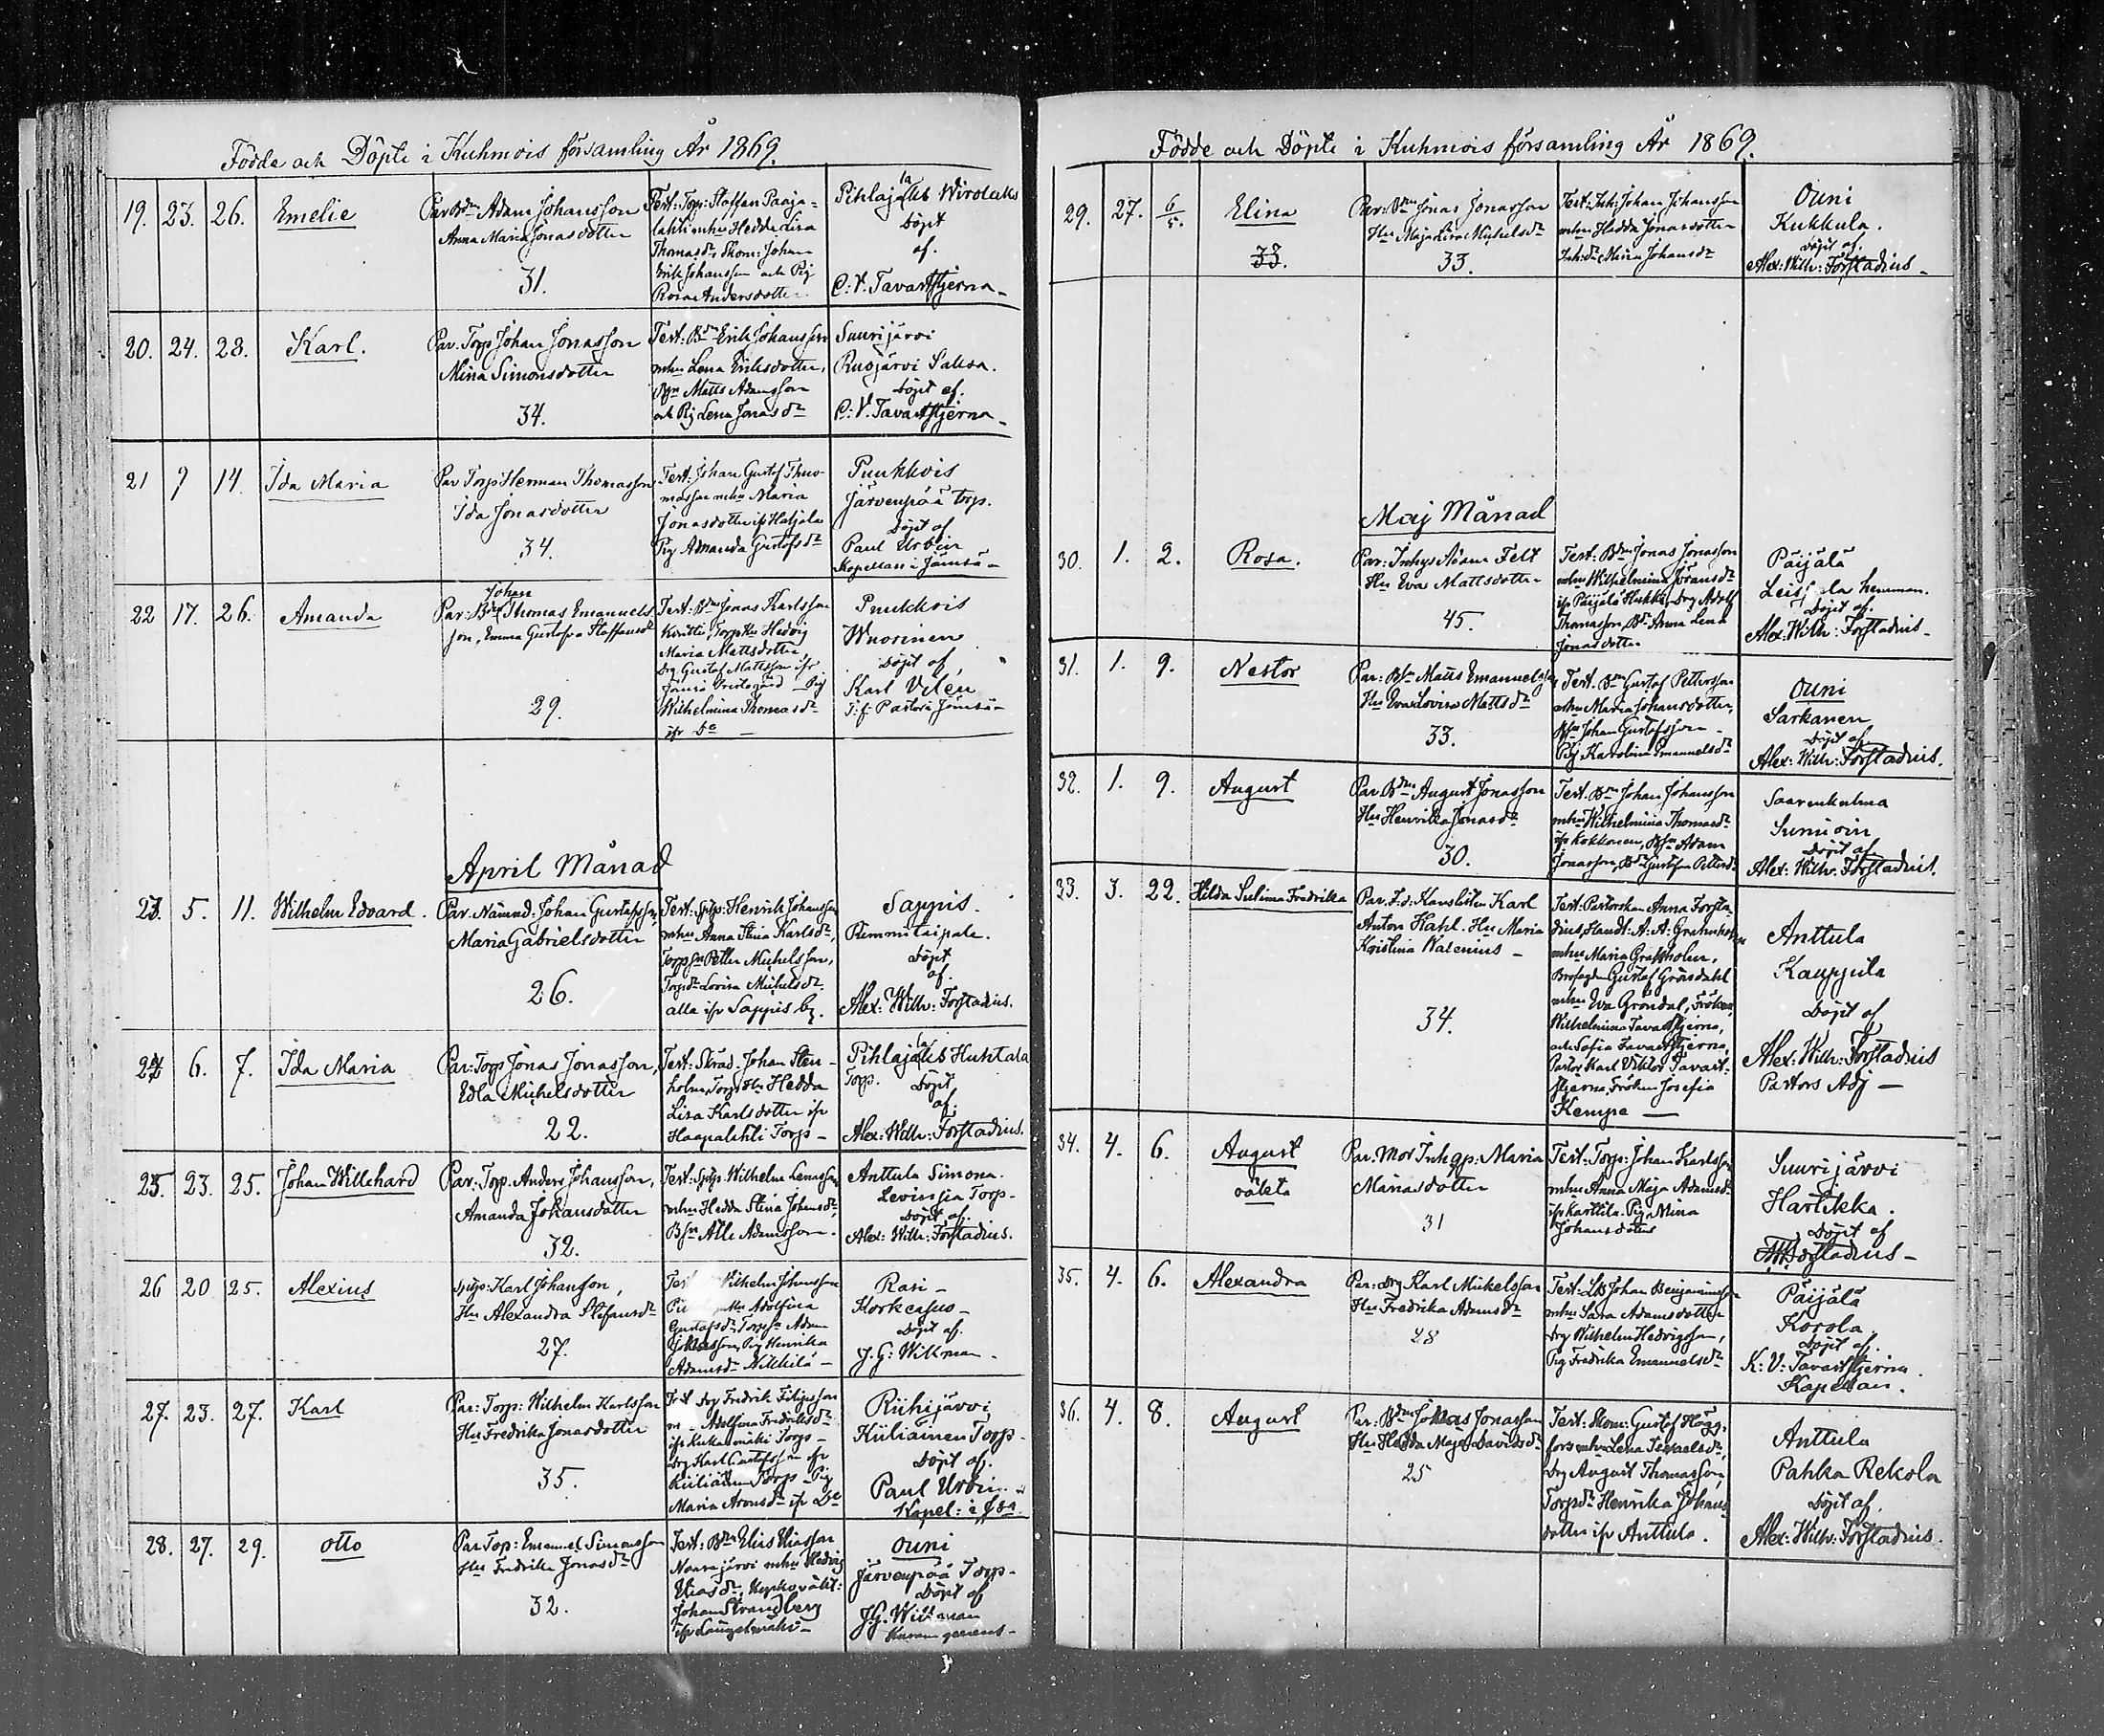 Födde och Döpte i Kuhmois församling År 1869.
19. 23. 26. Emelie
Par Bdn Adam Johansson
Anna Maria Jonasdotter
31.
Test: Torp: Staffan Paaja=
lahti mhu Hedda Lisa
Thomasdr, Skom: Johan
Erik Johansson och Pig
Rosa Andersdotter.
Pihlajalahti Wirolaks
Döpt
af.
C: V. Tavaststjerna -
20. 24. 28. Karl.
Par. Torp Johan Jonasson
Mina Simonsdotter
34.
Test: Bdn Erik Johansson
mhu Lena Eriksdotter,
Bsn Matts Adamsson
och Pig Lena Jonasdr
Suurijärvi
Rusjärvi Saksa.
Döpt af:
C: V. Tavaststjerna -
21 7 14. Ida Maria
Par Torp Herman Thomasson
Ida Jonasdotter
34.
Test: Johan Gustaf Thom-
masson mhu Maria
Jonasdotter ifr Hatjala
Pig Amanda Gustafsdr
Puukkois
Järvenpää torp.
Döpt af
Paul Urbin
Kapellan i Jämsä -
22 17. 26. Amanda
Johan
Par: Bdn Thomas Emanuels
son, Emma Gustafva Staffansdr
29.
Test: Bdn Jonas Karlsson
Torp Hu Hedvig
Maria Mattsdotter,
Drg Gustaf Mattsson ifr
Jämsä Prestegård Pig
Wilhelmina Thomasdr
ifr Do -
Puukkois
Wuorinen
Döpt af,
Karl Vilén
T: f: Pastor i Jämsä -
April Månad
23. 5. 11. Wilhelm Edvard.
Par. Nämnd. Johan Gustafsson,
Maria Gabrielsdotter
26.
Test: Sptp: Henrik Johansson
mhu Anna Stina Karlsdr,
Torpsn Petter Michelsson,
Torpdr Lovisa Michelsdr
alla ifr Sappis by.
Sappis.
Rimmitaipale.
Döpt
af.
Alex: Wilh: Forstadius.
24 6. 7. Ida Maria
Par: Torp Jonas Jonasson,
Edla Michelsdotter
22.
Test: Skräd. Johan Sten-
holm, Torp Hu Hedda
Lisa Karlsdotter ifr
Haapalahti Torp -
Pihlajalahti Huhtala
Torp.
Döpt
af.
Alex: Wilh: Forstadius.
25. 23. 25. Johan Willehard
Par: Torp. Anders Johansson,
Amanda Johansdotter
32.
Test: Sptp. Wilhelm Lenasson
mhu Hedda Stina Johansdr,
Bsn Alle Adamsson.
Anttula Simona.
Levinsia Torp-
Döpt af.
Alex: Wilh: Forstadius.
26 20 25. Alexius
Sptp: Karl Johansson,
Hu Alexandra Stefansdr
27.
Test Wilhelm Johansson
Adolfina
Gustafsdr, Torpsn Adam
Jonasson, Pig Henrika
Adamsdr Nikkilä -
Rasi -
Korkeasus -
Döpt af.
J: G: Wikman -
27. 23. 27. Karl
Par: Torp: Wilhelm Karlsson
Hu Fredrika Jonasdotter
35.
Test Drg Fredrik Filipsson
Adolfina Fredriksdr
ifr Kukasmäki Torp -
Drg Karl Gustafsson ifr
Kiiliäinen Torp - Pig
Maria Aronsdr ifr Do
Riihijärvi
Kiiliäinen Torp -
Döpt af.
Paul Urbin.
Kapel: i
28. 27. 29. Otto
Par Top: Emanuel Simonsson
Hu Fredrika Jonasdr
32.
Test: Bdn Elis Eliasson
Naarajärvi mhu Hedvig
Eliasdr,
Johan Strandberg
ifr Längelmäki -
Ouni
Järvenpää Torp -
Döpt af
J.G. Wikman
Födde och Döpte i Kuhmois församling År 1869.
29. 27. 6/5. Elina
33.
Par: Bdn Jonas Jonasson
Hu Maja Lisa Michelsdr
33.
Test: Inh: Johan Johansson
mhu Hedda Jonasdotter
Inh: dr Mina Johansdr
Ouni
Kukkula.
Döpt af.
Alex: Wilh: Forstadius -
Maj Månad
30. 1. 2. Rosa.
Par: Inhys Adam Felt
Hu Eva Mattsdotter
45.
Test: Bdn Jonas Jonasson
mhu Wilhelmina Göransdr
ifr Päijälä Hukki, Drg Adolf
Thomasson, Bdr Anna Lena
Jonasdotter
Päijälä
Leissala hemman.
Döpt af.
Alex: Wilh: Forstadius -
31. 1. 9. Nestor
Par: Bsn Matts Emanuelsson
Hu Eva Lovisa Mattsdr
33.
Test. Bdn Gustaf Pettersson
mhu Maria Johansdotter,
Bsn Johan Gustafsson -
Pig Karolina Emanuelsdr
Ouni
Sarkanen
Döpt af
Alex: Wilh: Forstadius.
32. 1. 9. August
Par. Bdn August Jonasson
Hu Henrika Jonasdr
30.
Test. Bdn Johan Johansson
mhu Wilhelmina Thomasdr
ifr Kokkonen, Bsn Adam
Jonasson, Bdr Gustafva Pettersdr
Saarenkulma
Sunioin
Döpt af
Alex: Wilh: Forstadius.
33. 3. 22. Hilda Selima Fredrika
Par. F.d. Kanslisten Karl
Anton Hahl. Hu Maria
Kristina Walenius -
34.
Test: Pastorskan Anna Forsta-
dius, Handl: A: A: Grahnholm
mhu Maria Granholm,
Brofogden Gustaf Gröndahl
mhu Eva Gröndal, Fröken
Wilhelmina Tavaststjerna,
och Sofia Tavaststjerna,
Pastor Karl Viktor Tavast-
stjerna, Fröken Josefia
Kempe -
Anttula
Kauppila
Döpt af
Alex: Wilh: Forstadius
Pastors Adj -
34. 4. 6. August
oäkta
Par. Mor Inhgp: Maria
Mariasdotter
31
Test: Torp: Johan Karlsson
mhu Anna Maja Adamsdr
ifr Karttila. Pig Mina
Johansdotter
Suurijärvi
Hartikka.
Döpt af
AW Forstadius -
35. 4. 6. Alexandra
Par: Drg Karl Mikelsson
Hu Fredrika Adamsdr
28
Test: Lb Johan Benjaminsson
mhu Sara Adamsdotter
Drg Wilhelm Hedrigsson,
Pig Fredrika Emanuelsdr
Päijälä
Korola
Döpt af.
K: V: Tavaststjerna.
Kapellan.
36. 4. 8. August
Par. Bdn Johan Jonasson
Hu Hedda Maja Davidsdr
25
Test: Skom: Gustaf Hägg-
fors mhu Lena Israelsdr,
Drg August Thomasson,
Torpdr Henrika Johans
dotter ifr Anttula.
Anttula
Pahka Rekola
Döpt af.
Alex: Wilh: Forstadius.